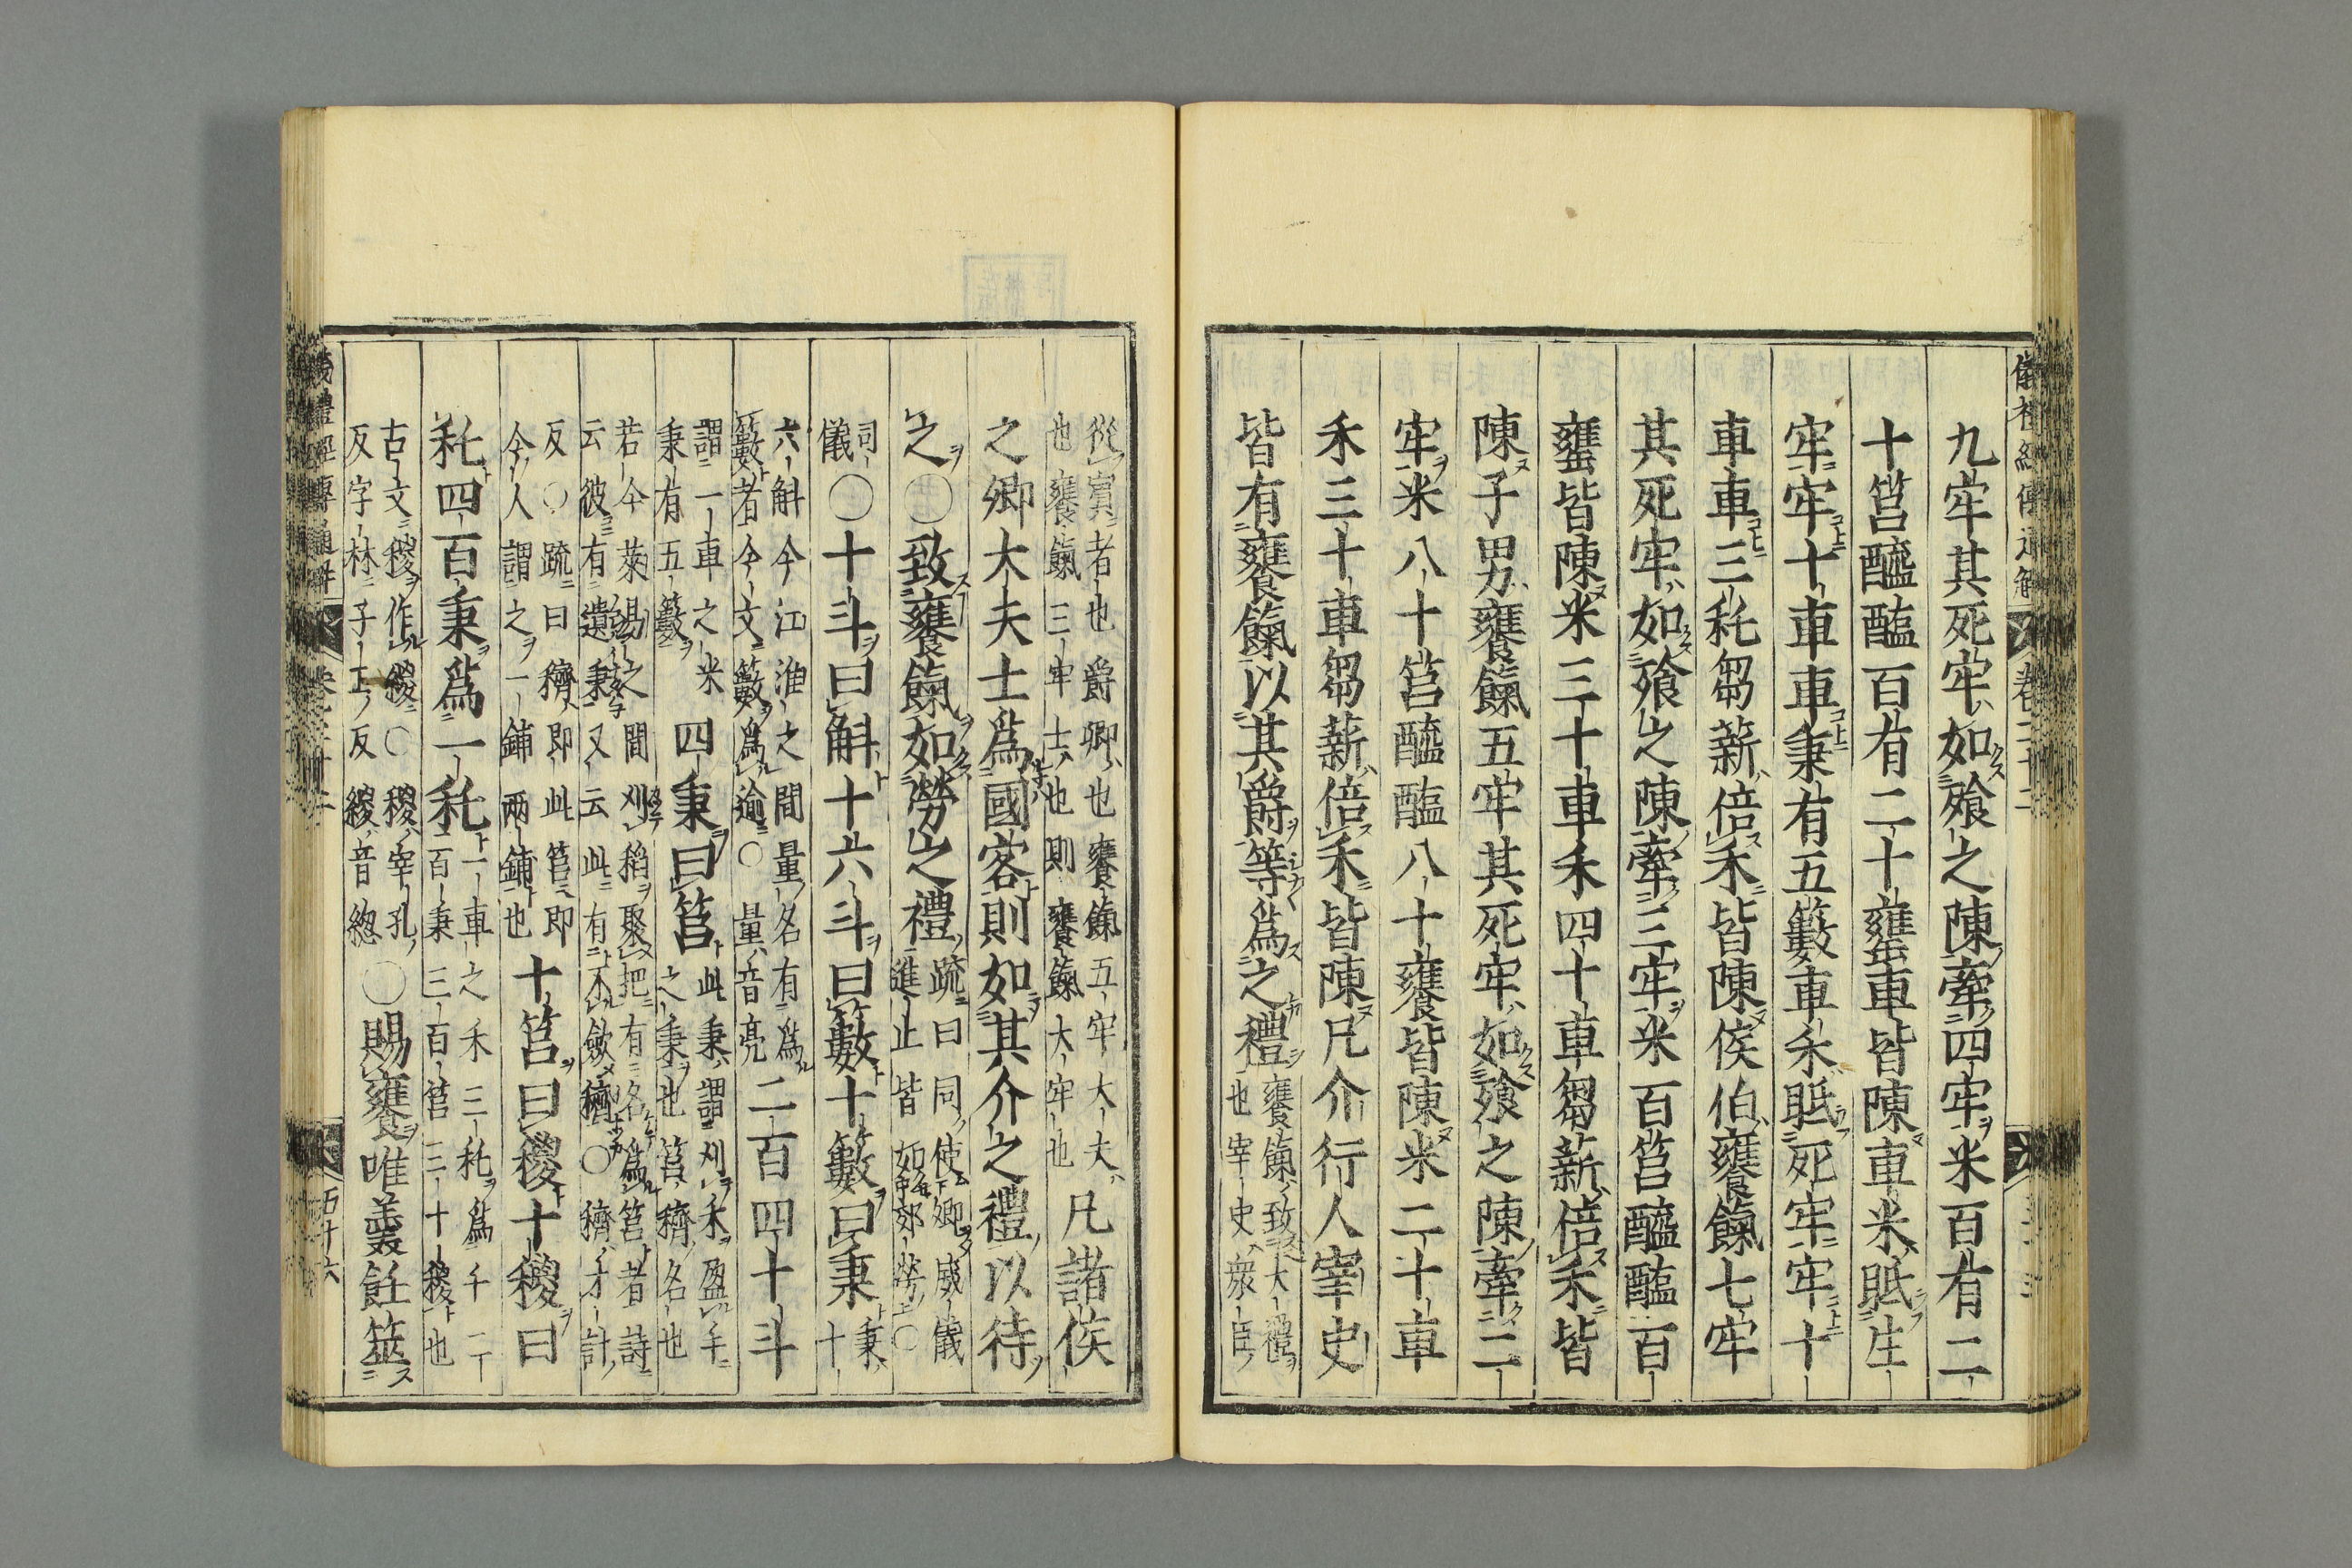 儀禮經傳通解 卷二十二
九牢其死牢如飧之陳牽四牢米百有二
十筥醯醢百有二十罋車皆陳車米眡生
牢牢十車車秉有五籔車禾眡死牢牢十
車車三秅芻薪倍禾皆陳侯伯饔餼七牢
其死牢如飧之陳牽三牢米百筥醯醢百
罋皆陳米三十車禾四十車芻薪倍禾皆
陳子男饔餼五牢其死牢如飧之陳牽二
牢米八十筥醯醢八十饔皆陳米二十車
禾三十車芻薪倍禾皆陳凡介行人宰史
皆有饔餼以其爵等爲之禮饔餼致大禮
也宰史衆臣
從賓者也爵卿也饔餼五牢大夫
也饔餼三牢士也則饔餼大牢也凡諸侯
之卿大夫士爲國客則如其介之禮以待
之○致饔餼如勞之禮疏曰同使卿威儀
進止皆如郊勞○
司
儀○十斗曰斛十六斗曰籔十籔曰秉秉十
六斛今江淮之間量名有爲
籔者今文籔爲逾○量音亮二百四十斗
謂一車之米
秉有五籔四秉曰筥此秉謂刈禾盈手
之秉也筥穧名也
若今萊陽之間刈稻聚把有名爲筥者詩
云彼有遺秉又云此有不斂穧○穧才計
反○疏曰穧即此筥即
今人謂之一鋪兩鋪也十筥曰稯十稯曰
秅四百秉爲一秅一車之禾三秅爲千二
百秉三百筥三十稯也
古文稯作緵○稯宰孔
反字林子工反緵音緫○賜饔唯羹飪筮
儀禮經傳通解 卷二十二 五十六